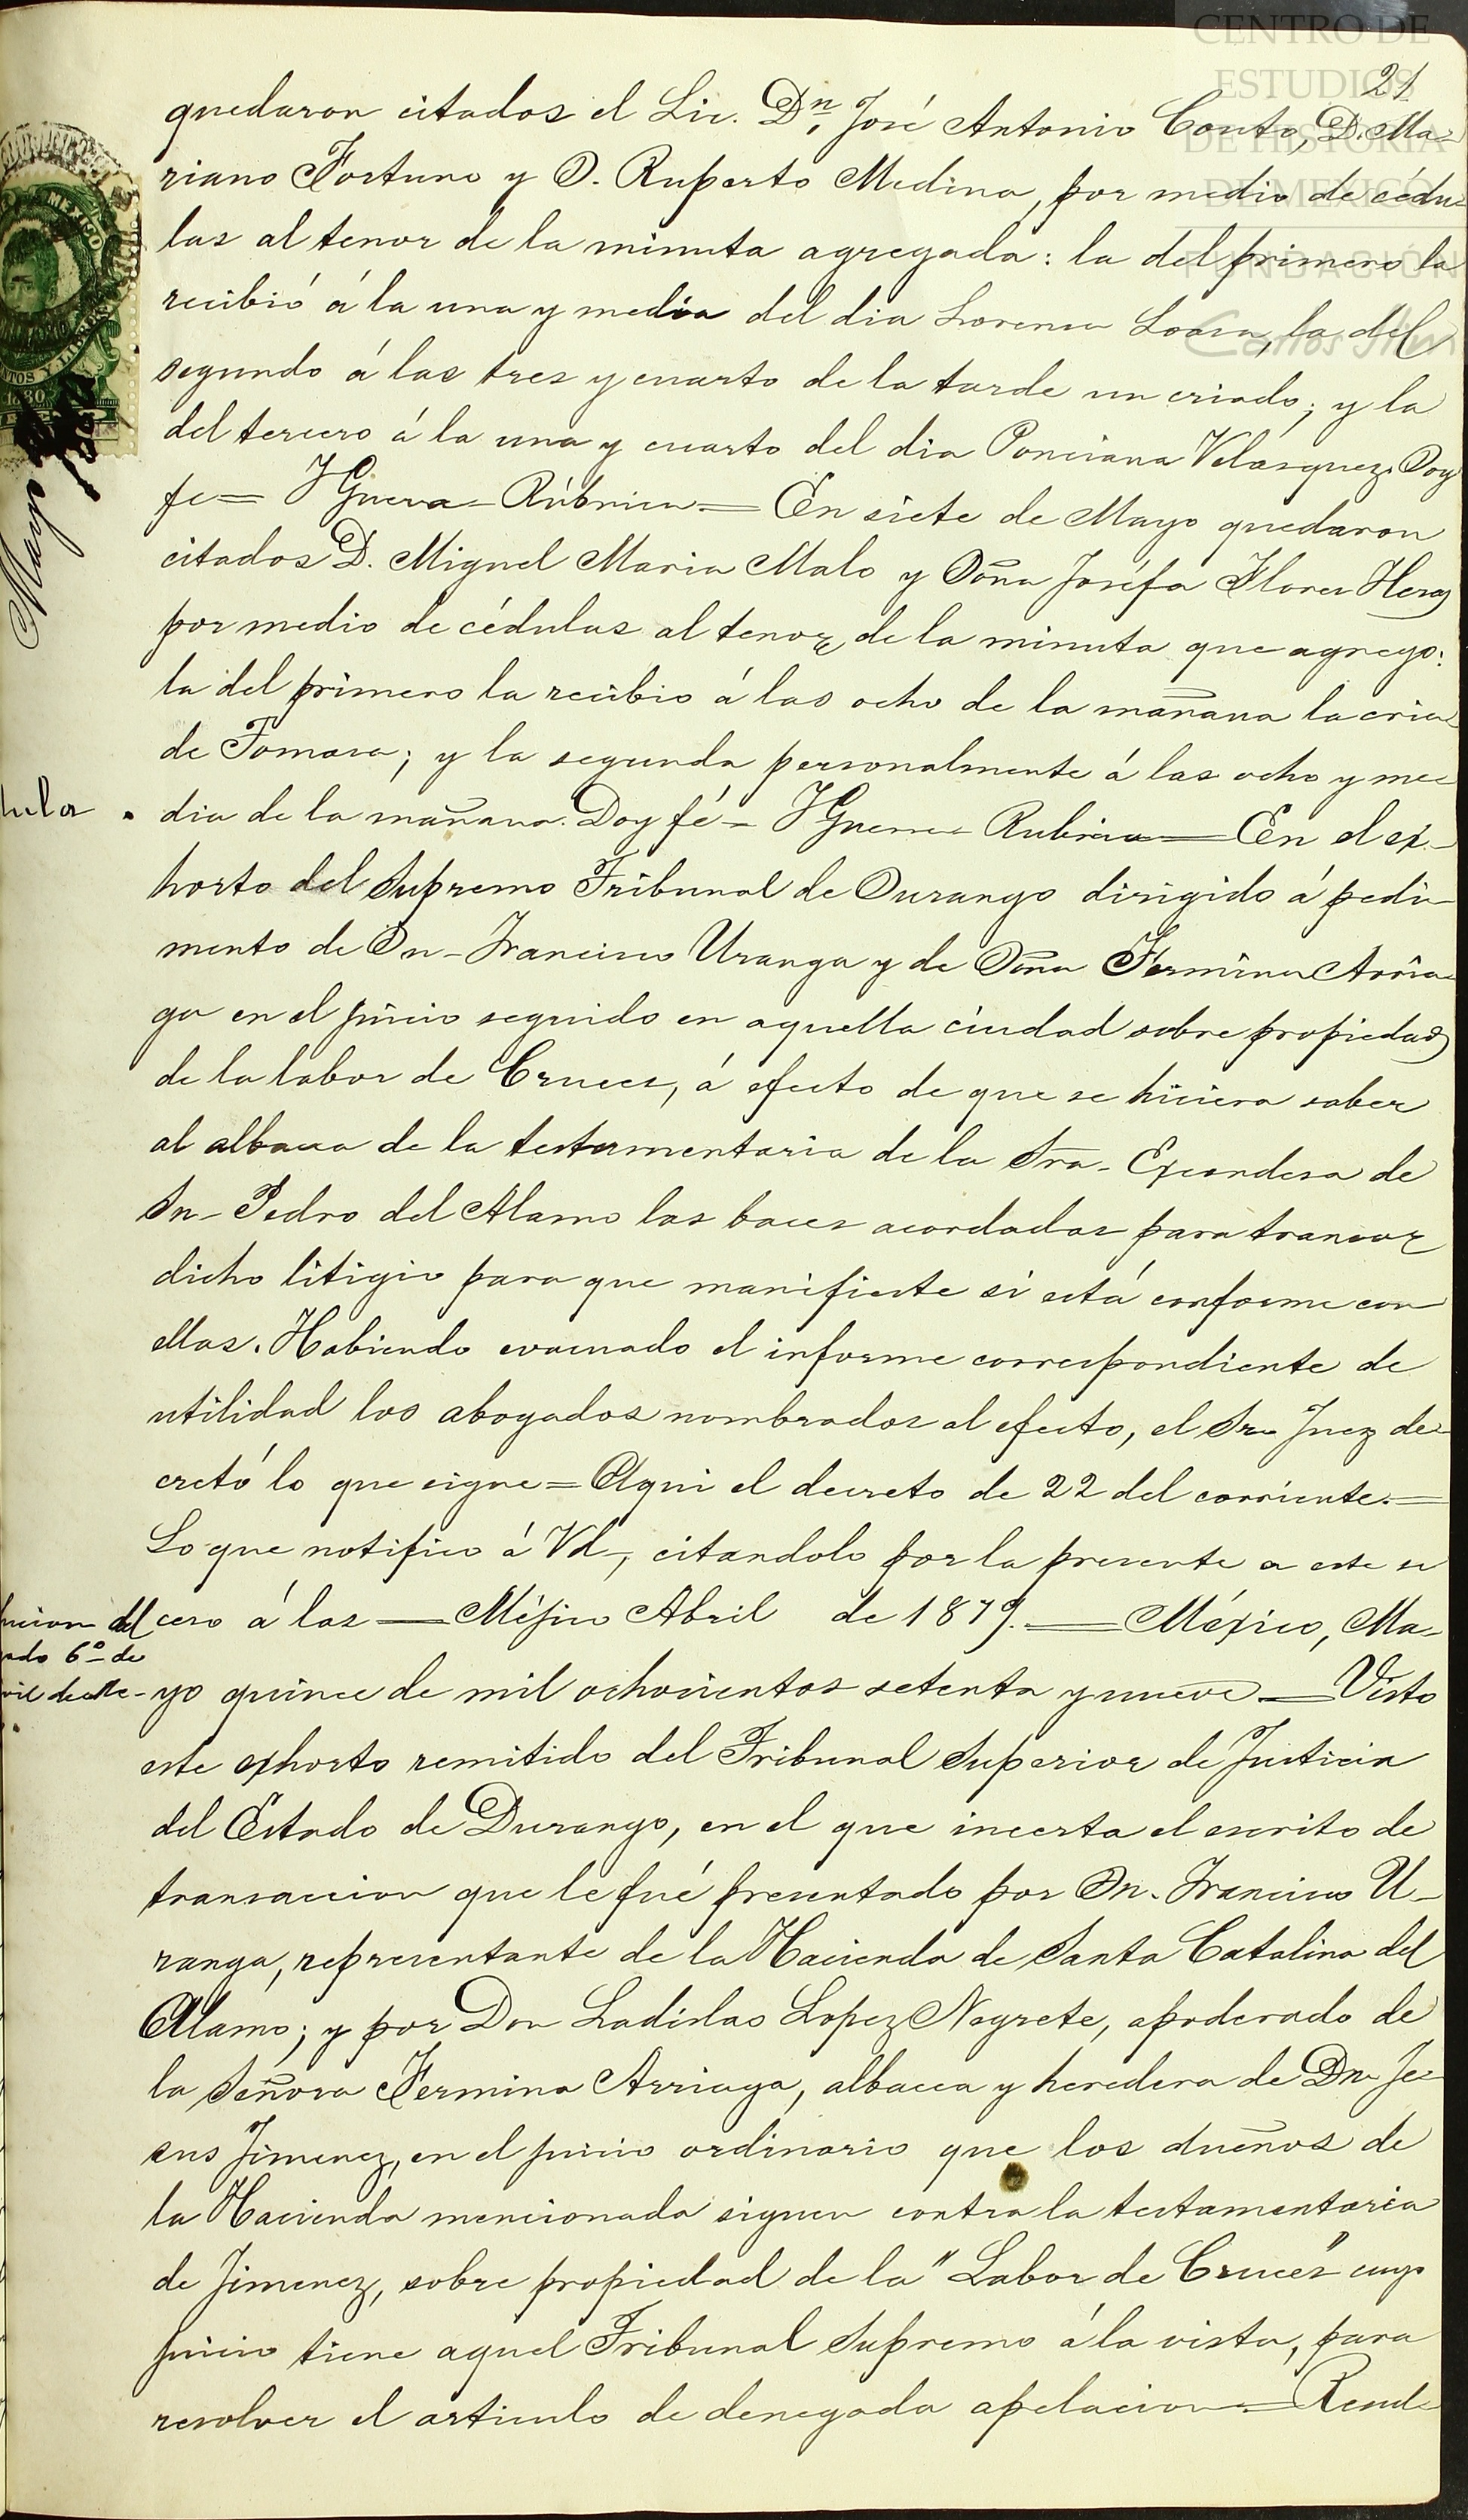 CENTRO DE
ESTUDIOS
DE HISTORIA
DE MEXICO
FUNDACIÓN
Carlos Slim
21
quedaron citados el Lic. Dn. José Antonio Couto, D. Ma-
riano Fortuno y D. Ruperto Medina, por medio de cédu-
las al tenor de la minuta agregada: la del primero la
recibió á la una y media del dia Lorenza, la del
segundo á las tres y cuarto de la tarde un criado; y la
del tercero á la una y cuarto del dia Ponciana Velasquez. Doy
fe= Rúbrica= En siete de Mayo quedaron
citados D. Miguel Maria Malo y Doña Joséfa Flores
por medio de cédulas al tenor de la minuta que agrego:
la del primero la recibio á las ocho de la mañana la cria-
da Tomasa; y la segunda personalmente á las ocho y me-
dia de la mañana. Doy fé= Rubrica= En el ex-
horto del Supremo Tribunal de Durango dirigido á pedi-
mento de Dn- Francisco Uranga y de Doña Fermina Arria-
ga en el juicio seguido en aquella ciudad sobre propiedad
de la labor de Cruces, á efecto de que se hiciera saber
al albacea de la testamentaria de la Sra- Excondesa de
Sn- Pedro del Alamo las baces acordadas para transar
dicho litigio para que manifieste si está conforme con
ellas. Habiendo evacuado el informe correspondiente de
utilidad los abogados nombrados al efecto, el Sr- Juez de-
cretó lo que sigue= Aqui el decreto de 22 del corriente.=
Lo que notifico á Vd-, citandolo por la presente a este
á las = Méjico Abril de 1879. = México, Ma-
yo quince de mil ochocientos setenta y nueve = Visto
este exhorto remitido del Tribunal Superior de Justicia
del Estado de Durango, en el que incerta el escrito de
transaccion que le fué presentado por Dn. Francisco U-
ranga, representante de la Hacienda de Santa Catalina del
Alamo; y por Don Ladislao Lopez Negrete, apoderado de
la Señora Fermina Arriaga, albacea y heredera de Dn Je-
sus Jimenez, en el juicio ordinario que los dueños de
la Hacienda mencionada siguen contra la testamentaria
de Jimenez, sobre propiedad de la "Labor de Cruces" cuyo
juicio tiene aquel Tribunal Supremo á la vista, para
resolver el articulo de denegada apelacion = Resul-
MEXICO
1880
Mayo
dula
del
6º de